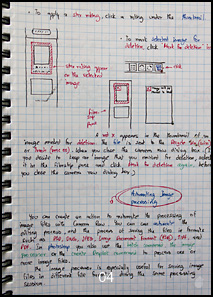 · To apply a star rating, click a rating under the thumbnail.
· To mark selected image for deletion, click
star rating appear on the selected image
A red X appears in the thumbnail of an image marked for deletion. The file is sent to the Recycle Bin (Win) or Trash (Mac OS) when you close the camera raw dialog box. (If you decide to keep an image that you marked for deletion, select it in the filmstrip pane and click again, before you close the camera raw dialog box.)
Automating image processing
You can create an action to automate the processing of image files with Camera Raw. You can automate the editing process and the process of saving the files in formats such as PSD, DNG, JPEG, Large Document Format (PSB), TIFF, and PDF. In Photoshop you can use the Batch command, the image processor, or the create Droplet command to process one or more image files.
The image processor is especially useful for saving image files in different file formats during the same processing session.
04